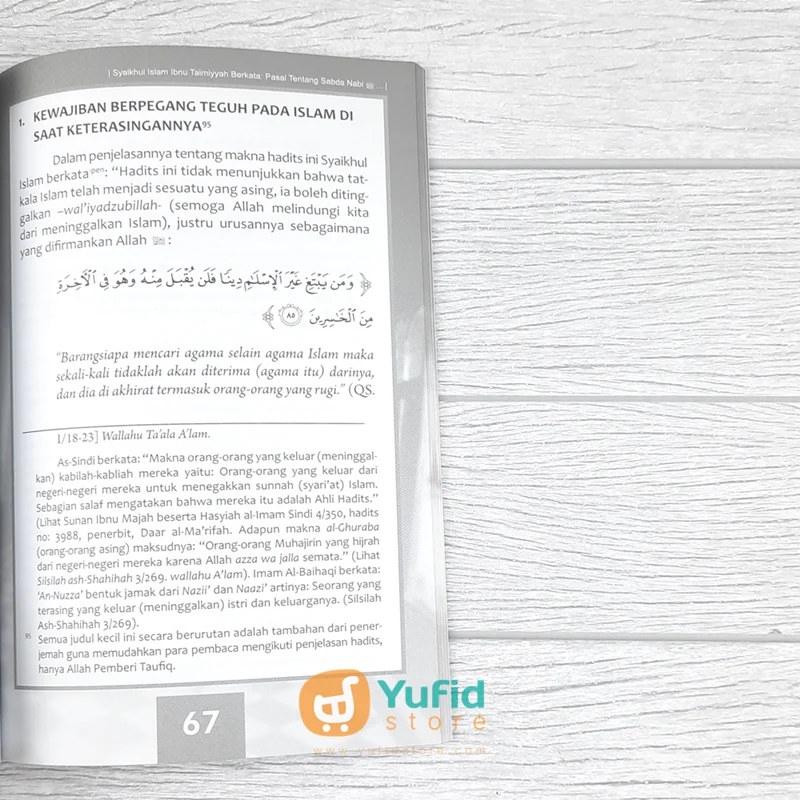 | Syaikhul Islam Ibnu Taimiyyah Berkata: Pasal Tentang Sabda Nabi ﷺ ... |
1. KEWAJIBAN BERPEGANG TEGUH PADA ISLAM DI
SAAT KETERASINGANNYA⁹⁵
Dalam penjelasannya tentang makna hadits ini Syaikhul
Islam berkata ᵖᵉⁿ: “Hadits ini tidak menunjukkan bahwa tat-
kala Islam telah menjadi sesuatu yang asing, ia boleh diting-
galkan –wal’iyadzubillah- (semoga Allah melindungi kita
dari meninggalkan Islam), justru urusannya sebagaimana
yang difirmankan Allah :
﴿ وَمَن يَبْتَغِ غَيْرَ ٱلْإِسْلَٰمِ دِينًا فَلَن يُقْبَلَ مِنْهُ وَهُوَ فِى ٱلْآخِرَةِ
مِنَ ٱلْخَٰسِرِينَ ٨٥ ﴾
“Barangsiapa mencari agama selain agama Islam maka
sekali-kali tidaklah akan diterima (agama itu) darinya,
dan dia di akhirat termasuk orang-orang yang rugi.” (QS.
1/18-23] Wallahu Ta’ala A’lam.
As-Sindi berkata: “Makna orang-orang yang keluar (meninggal-
kan) kabilah-kabliah mereka yaitu: Orang-orang yang keluar dari
negeri-negeri mereka untuk menegakkan sunnah (syari’at) Islam.
Sebagian salaf mengatakan bahwa mereka itu adalah Ahli Hadits.”
(Lihat Sunan Ibnu Majah beserta Hasyiah al-Imam Sindi 4/350, hadits
no: 3988, penerbit, Daar al-Ma’rifah. Adapun makna al-Ghuraba
(orang-orang asing) maksudnya: “Orang-orang Muhajirin yang hijrah
dari negeri-negeri mereka karena Allah azza wa jalla semata.” (Lihat
Silsilah ash-Shahihah 3/269. wallahu A’lam). Imam Al-Baihaqi berkata:
‘An-Nuzza’ bentuk jamak dari Nazii’ dan Naazi’ artinya: Seorang yang
terasing yang keluar (meninggalkan) istri dan keluarganya. (Silsilah
Ash-Shahihah 3/269).
95 Semua judul kecil ini secara berurutan adalah tambahan dari pener-
jemah guna memudahkan para pembaca mengikuti penjelasan hadits,
hanya Allah Pemberi Taufiq.
67
Yufid
store
www.yufidstore.com